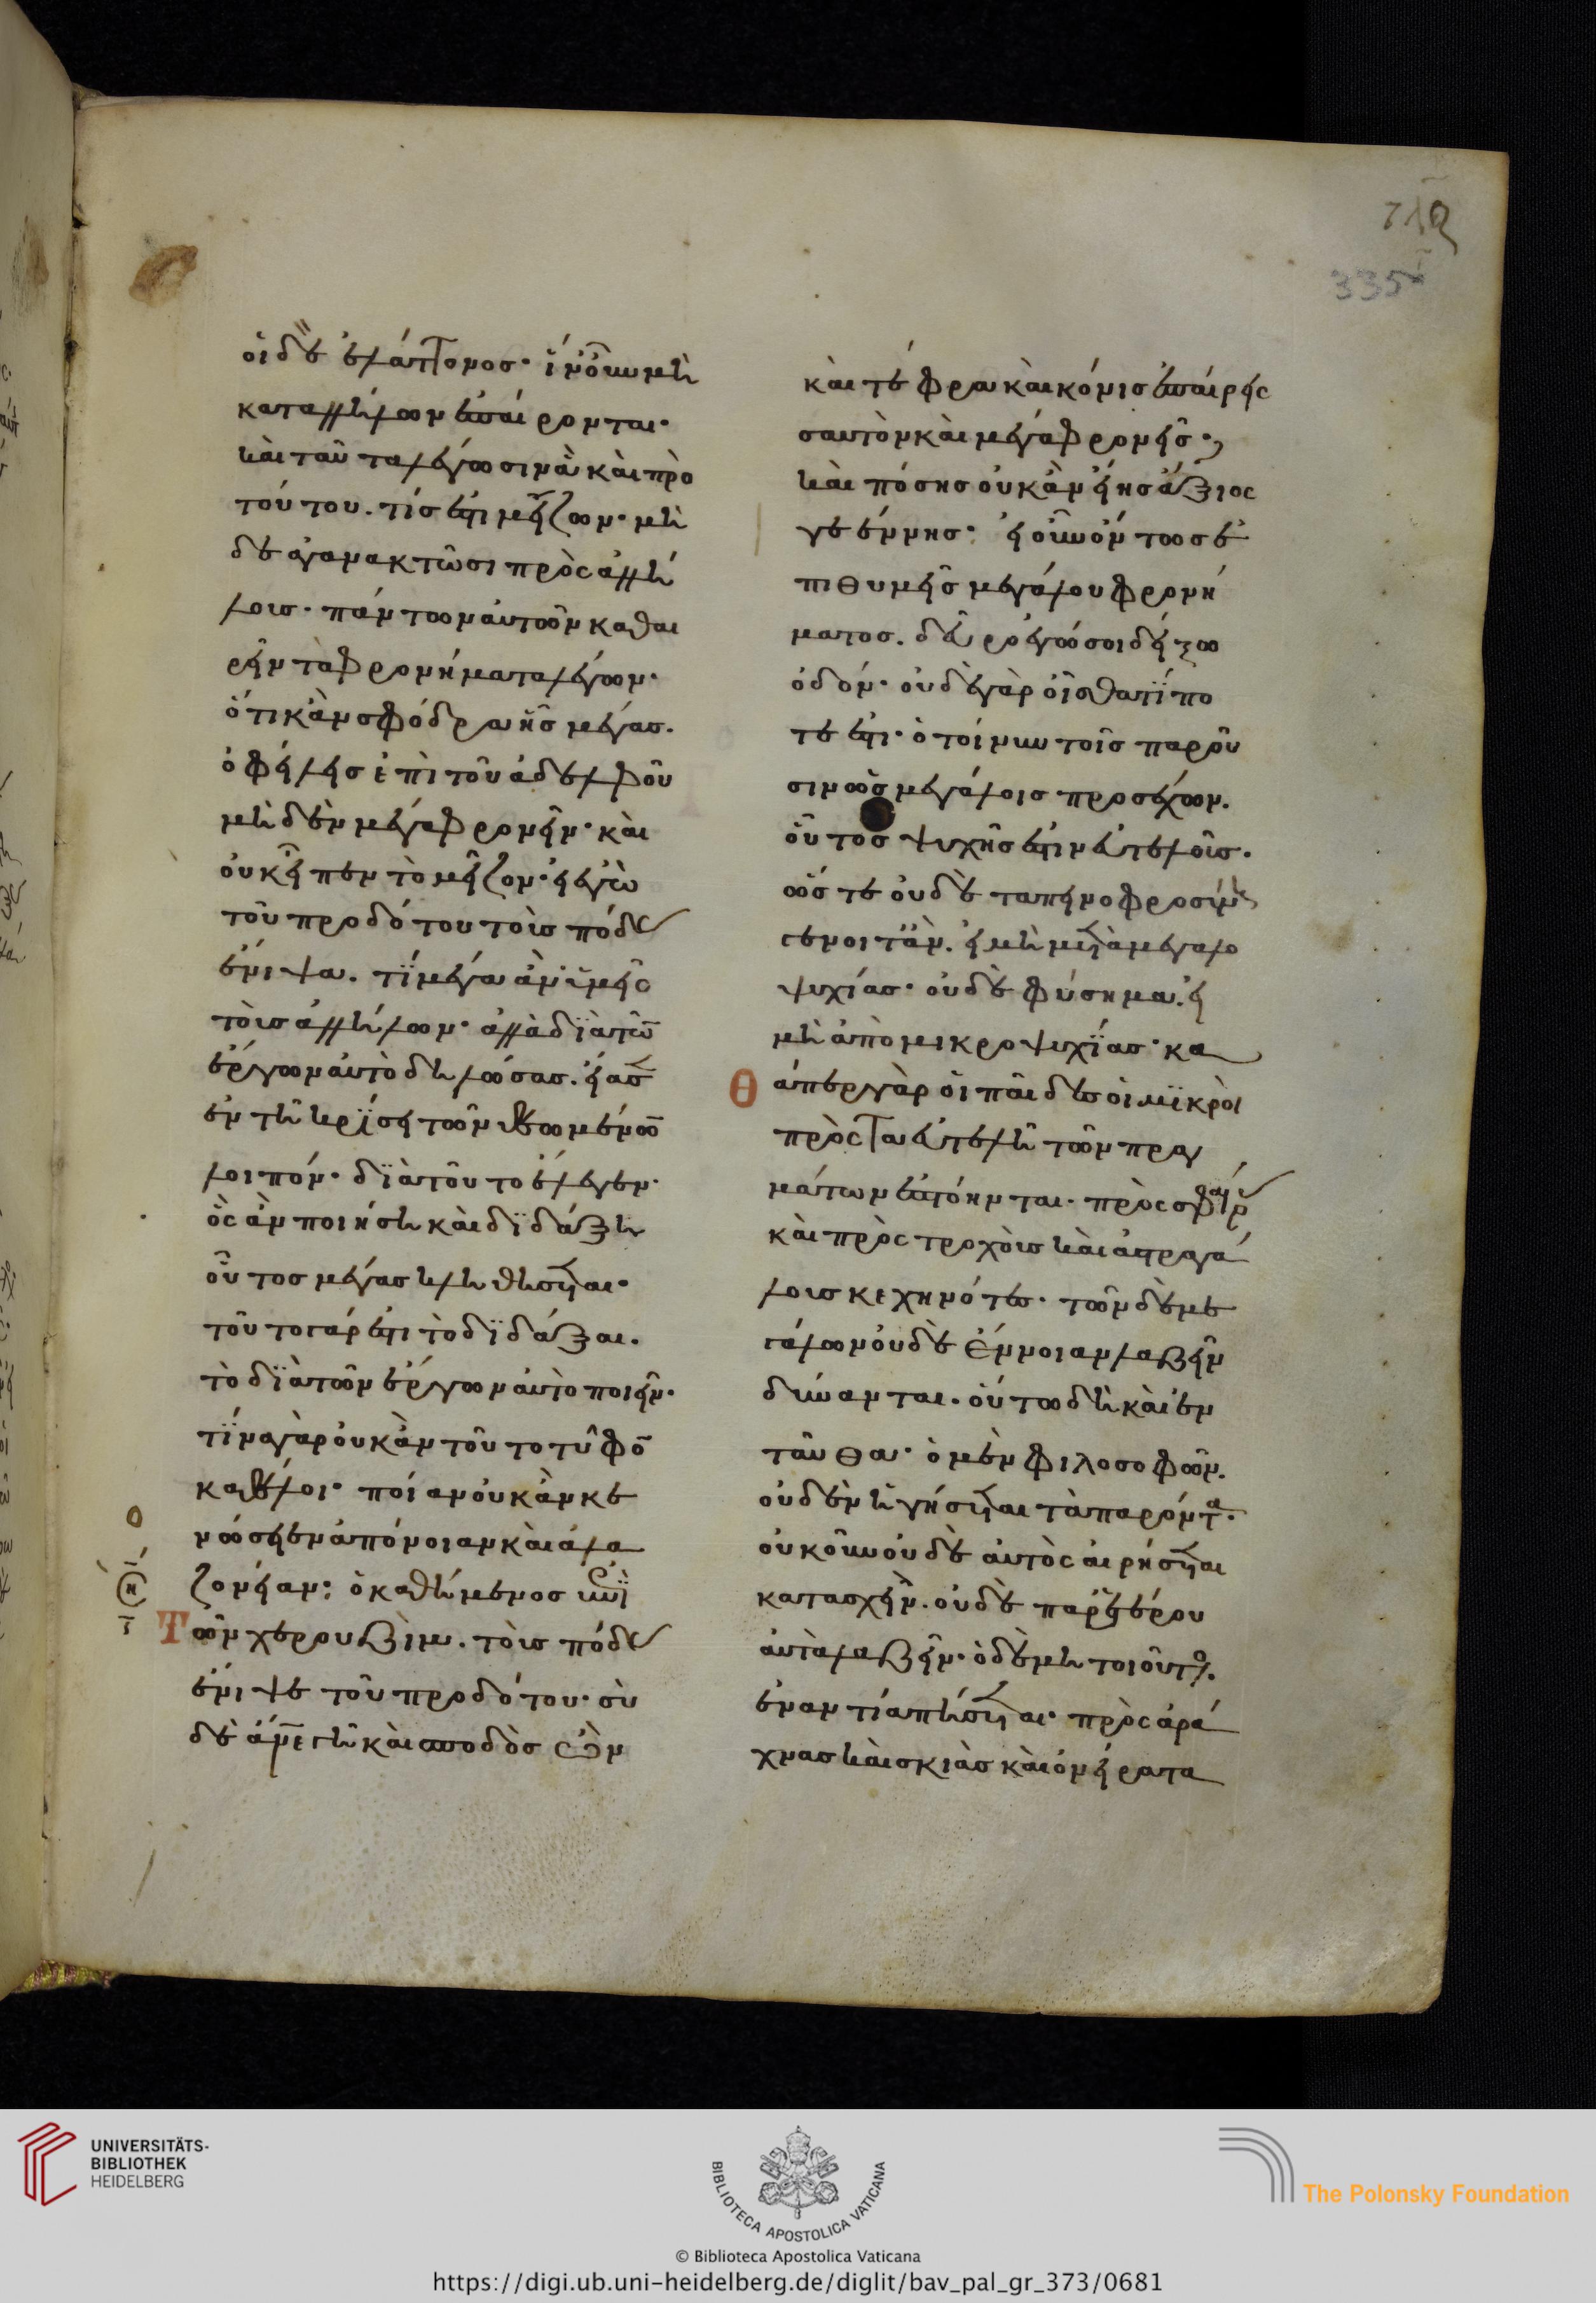 οἱ δὲ ἐλάττονος· ἵν' οὖν μὴ
κατ' ἀλλήλων ἐπαίρονται·
καὶ ταῦτα λέγωσιν ἃ καὶ πρὸ
τούτου. τίς ἐστι μείζων· μὴ
δὲ ἀγανακτῶσι πρὸς ἀλλή
λοις. πάντων αὐτῶν καθαι
ρεῖν τὰ φρονήματα λέγων·
ὅτι κἂν σφόδρα ἦς μέγας.
ὀφείλεις ἐπὶ τοῦ ἀδελφοῦ
μὴδὲν μεγαφρονεῖν· καὶ
οὐκ εἶπεν τὸ μεῖζον· εἰ ἐγὼ
τοῦ προδότου τοὺς πόδας
ἔνιψα. τί μέγα ἂν ὑμεῖς
τοὺς ἀλλήλων· ἀλλὰ διὰ τῶν
ἔργων αὐτὸ δηλώσας. εἴασεν
ἐν τῆ κρίσει τῶν θεωμένων
λοιπόν· διὰ τοῦτο ἔλεγεν·
ὃς ἂν ποιήση καὶ διδάξη
οὗτος μέγας κληθήσεται·
τοῦτο γάρ ἐστι τὸ διδάξαι.
τὸ διὰ τῶν ἔργων αὐτὸ ποιεῖν·
τίνα γὰρ οὐκ ἂν τοῦτο τῦφον
καθέλοι· ποίαν οὐκ ἂν κε
νώσειεν ἀπόνοιαν καὶ ἀλα
ζονείαν; ὁ καθήμενος ἐπὶ
Τῶν χερουβὶμ. τοὺς πόδας
ἔνιψε τοῦ προδότου· σὺ
δὲ ἄνε γῆ καὶ σποδὸς ὢν
καὶ τέφρα καὶ κόνις ἐπαίρεις
σαυτὸν καὶ μεγαφρονεῖς·
καὶ πόσης οὐκ ἂν εἴης ἄξιος
γεέννης; εἰ οὖν ὄντως ἐ
πιθυμεῖς μεγάλου φρονή
ματος. δεῦρο ἐγώ σοι δείξω
ὁδόν· οὐδὲ γὰρ οἶσθα τί πο
τέ ἐστι· ὁ τοίνυν τοῖς παροῦ
σιν ὡς μεγάλοις προσέχων.
οὗτος ψυχῆς ἐστιν εὐτελοῦς.
ὥστε οὐδὲ ταπεινοφροσύνη
γένοιτ' ἂν. εἰ μὴ μετὰ μεγαλο
ψυχίας· οὐδὲ φύσημα. εἰ
μὴ ἀπὸ μικροψυχίας· κα
Θάπερ γὰρ οἱ παῖδες οἱ μικροὶ
πρὸς τὰ εὐτελῆ τῶν πραγ
μάτων ἐπτόηνται· πρὸς σφαίρας
καὶ πρὸς τροχοὺς καὶ ἀστραγά
λους κεχηνότες· τῶν δὲ με
γάλων οὐδὲ ἔννοιαν λαβεῖν
δύνανται. οὕτω δὴ καὶ ἐν
ταῦθα· ὁ μὲν φιλοσοφῶν.
οὐδὲν ἡγήσεται τὰ παρόντα·
οὐκοῦν οὐδὲ αὐτὸς αἱρήσεται
κατασχεῖν. οὐδὲ παρ' ἑτέρου
αὐτὰ λαβεῖν· ὁ δὲ μὴ τοιοῦτος.
ἐναντία πείσεται· πρὸς ἀρά
χνας καὶ σκιὰς καὶ ὀνείρατα
335
UNIVERSITÄTS-
BIBLIOTHEK
HEIDELBERG
BIBLIOTECA APOSTOLICA VATICANA
The Polonsky Foundation
© Biblioteca Apostolica Vaticana
https://digi.ub.uni-heidelberg.de/diglit/bav_pal_gr_373/0681